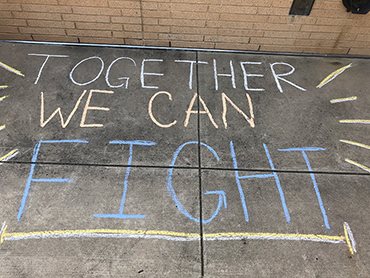 TOGETHER
WE CAN
FIGHT